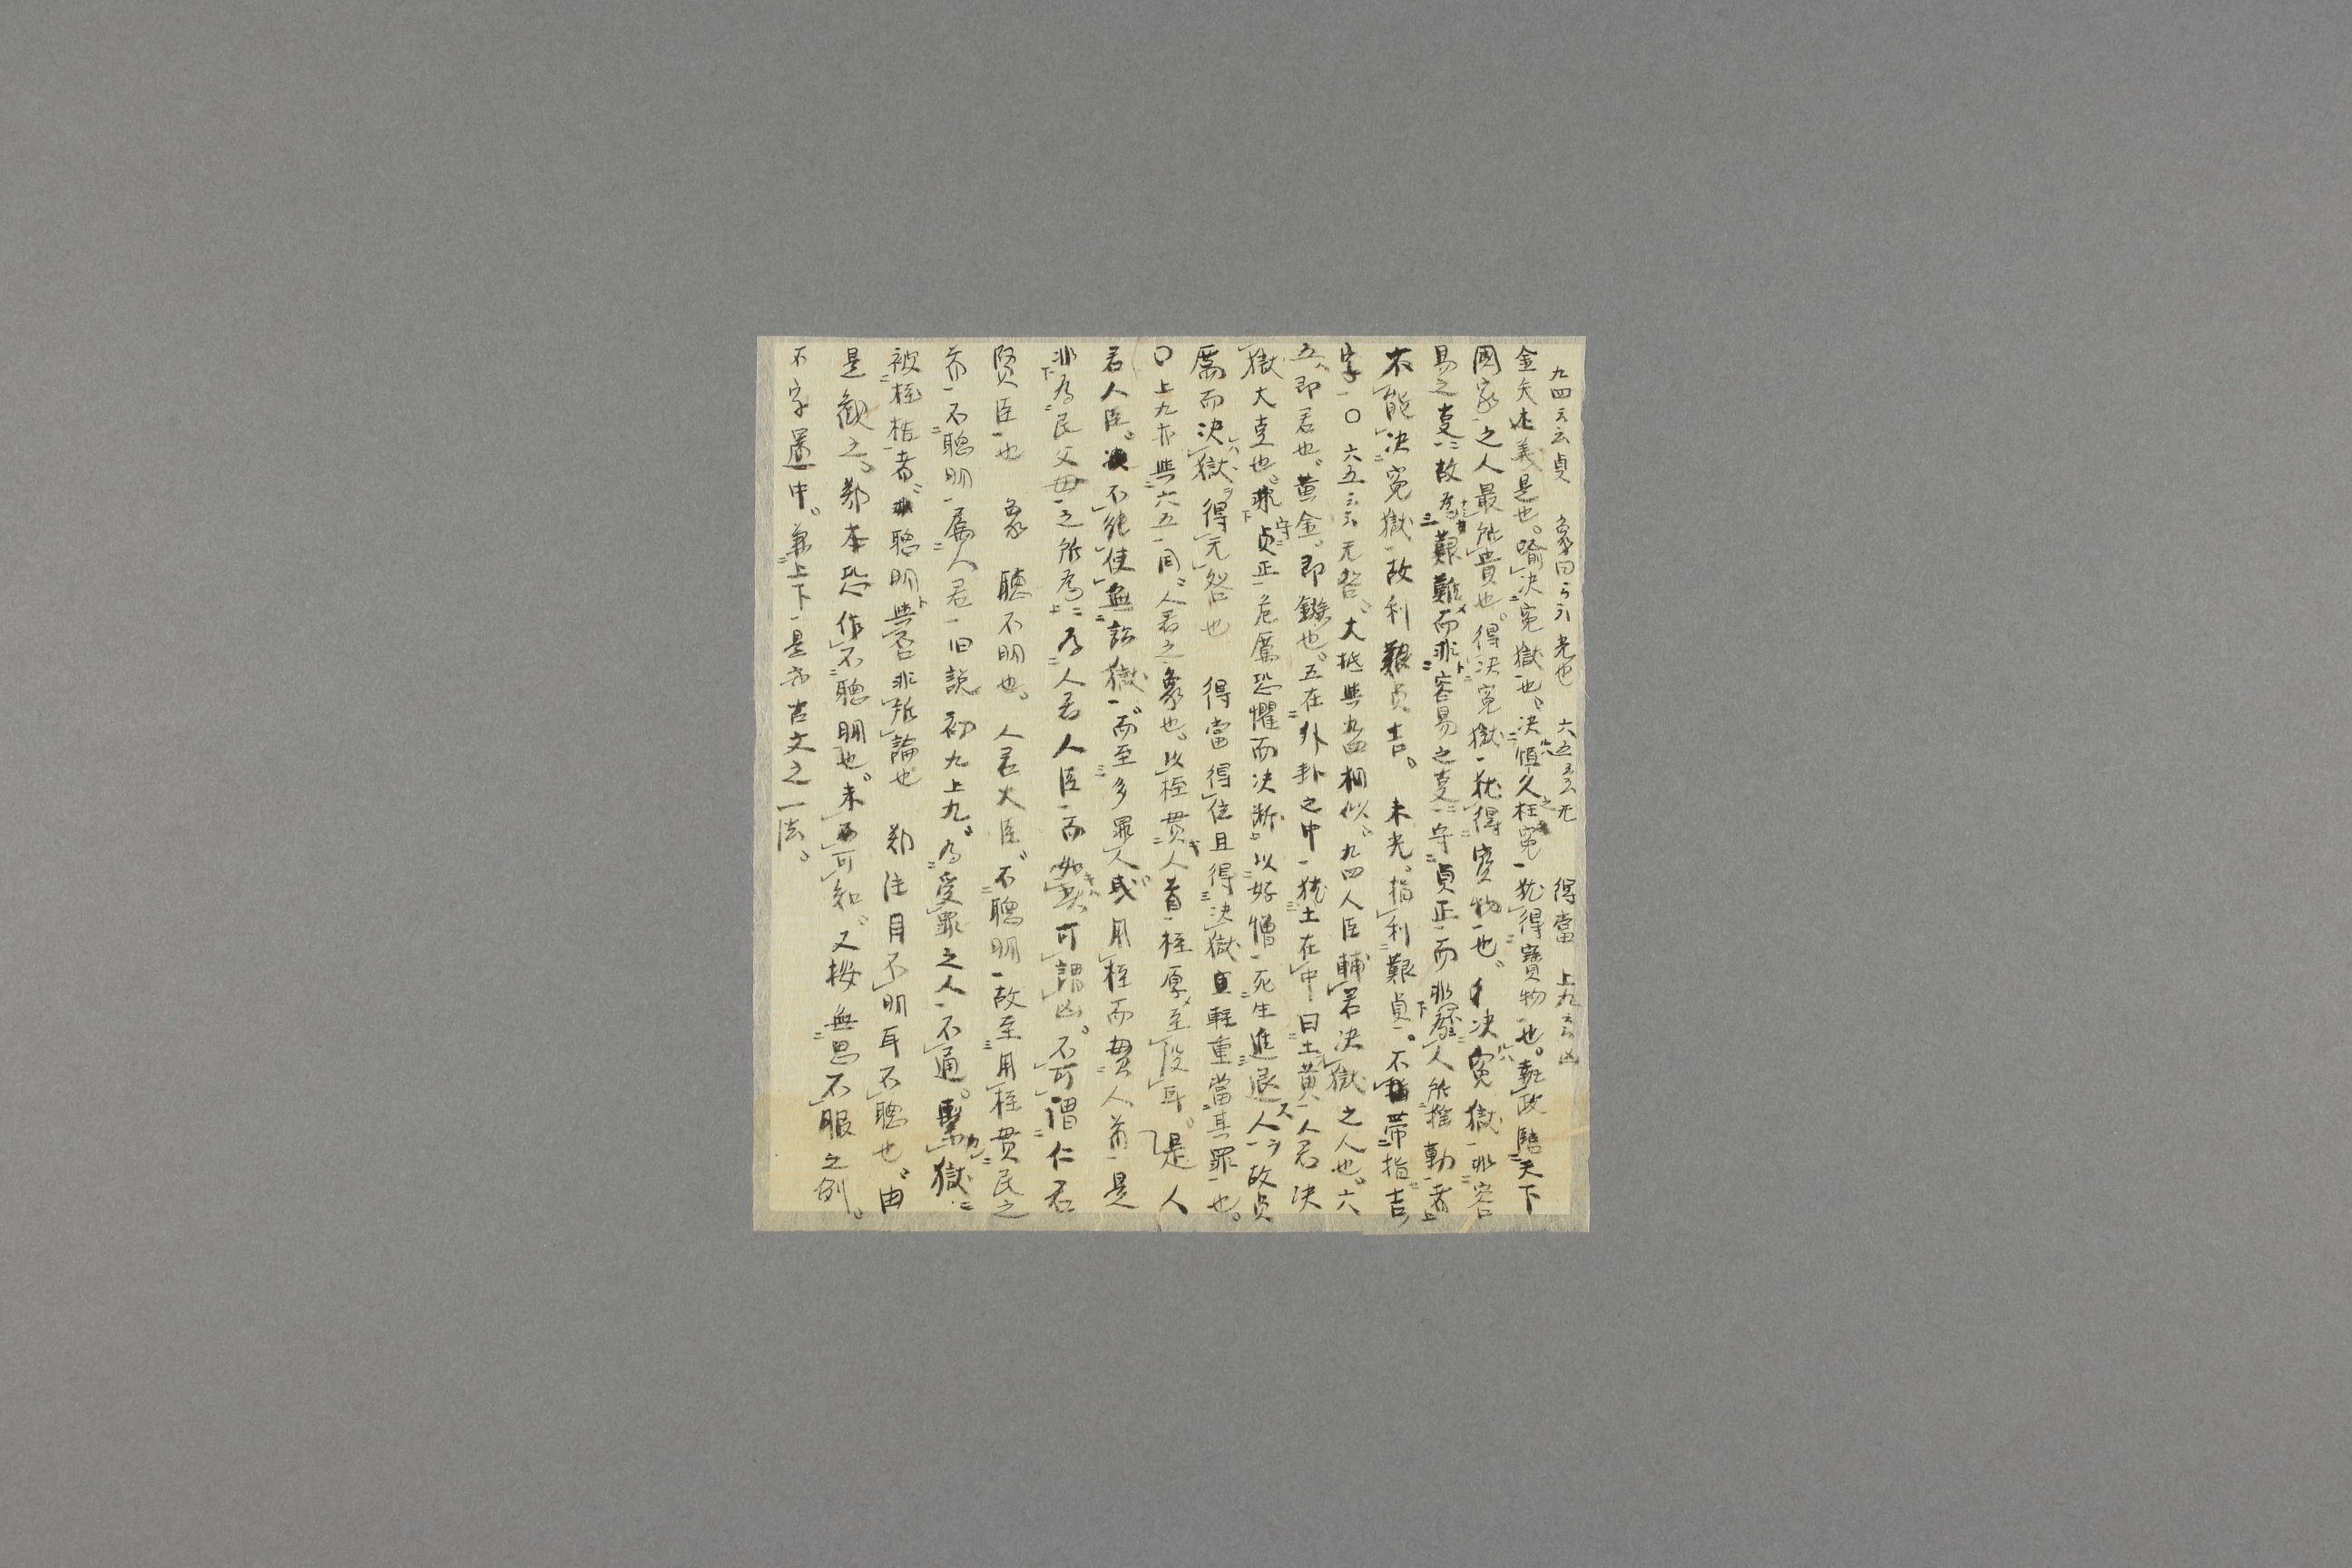 九四云云貞 象曰云云光也 六五云云无 得當 上九云云凶
金矢本義是也。喩決寃獄也。決恒久枉寃猶得寶物也。執政臨天下
國家之人最所貴也。得決寃獄猶得寶物也。決寃獄非容
易之事故為艱難而非容易之事守貞正而非廢人所推勤者
不能決寃獄故利艱貞吉。 未光。指利艱貞。不帶指吉
字〇六五云云无咎。大抵與九四相似。九四人臣輔君決獄之人也。六
五即君也。黄金。即鑠也。五在外卦之中猶土在中曰土黄人君決
獄大事也。非守貞正危厲恐懼而決斷以好憎死生進退人故貞
厲而決獄得无咎也 得當得位且得決獄輕重當其罪也。
〇上九亦與六五同。人君之象也。以桎貫人首桎厚至没耳。是人
君人臣。不能使無訟獄而至多罪人或用桎而貫人首是
非為民父母之所為為人君人臣而如此可謂凶。不可謂仁君
賢臣也 象 聽不明也。 人君大臣。不聰明故至用桎貫民之
首不聰明屬人君旧説初九上九。為受罪之人不通。繫獄
被桎梏者聰明與否非所論也 鄭注目不明耳不聰也。由
是觀之。鄭本恐作不聰明也。未可知。又按無思不服之例。
不字置中。兼上下是亦古文之一法。